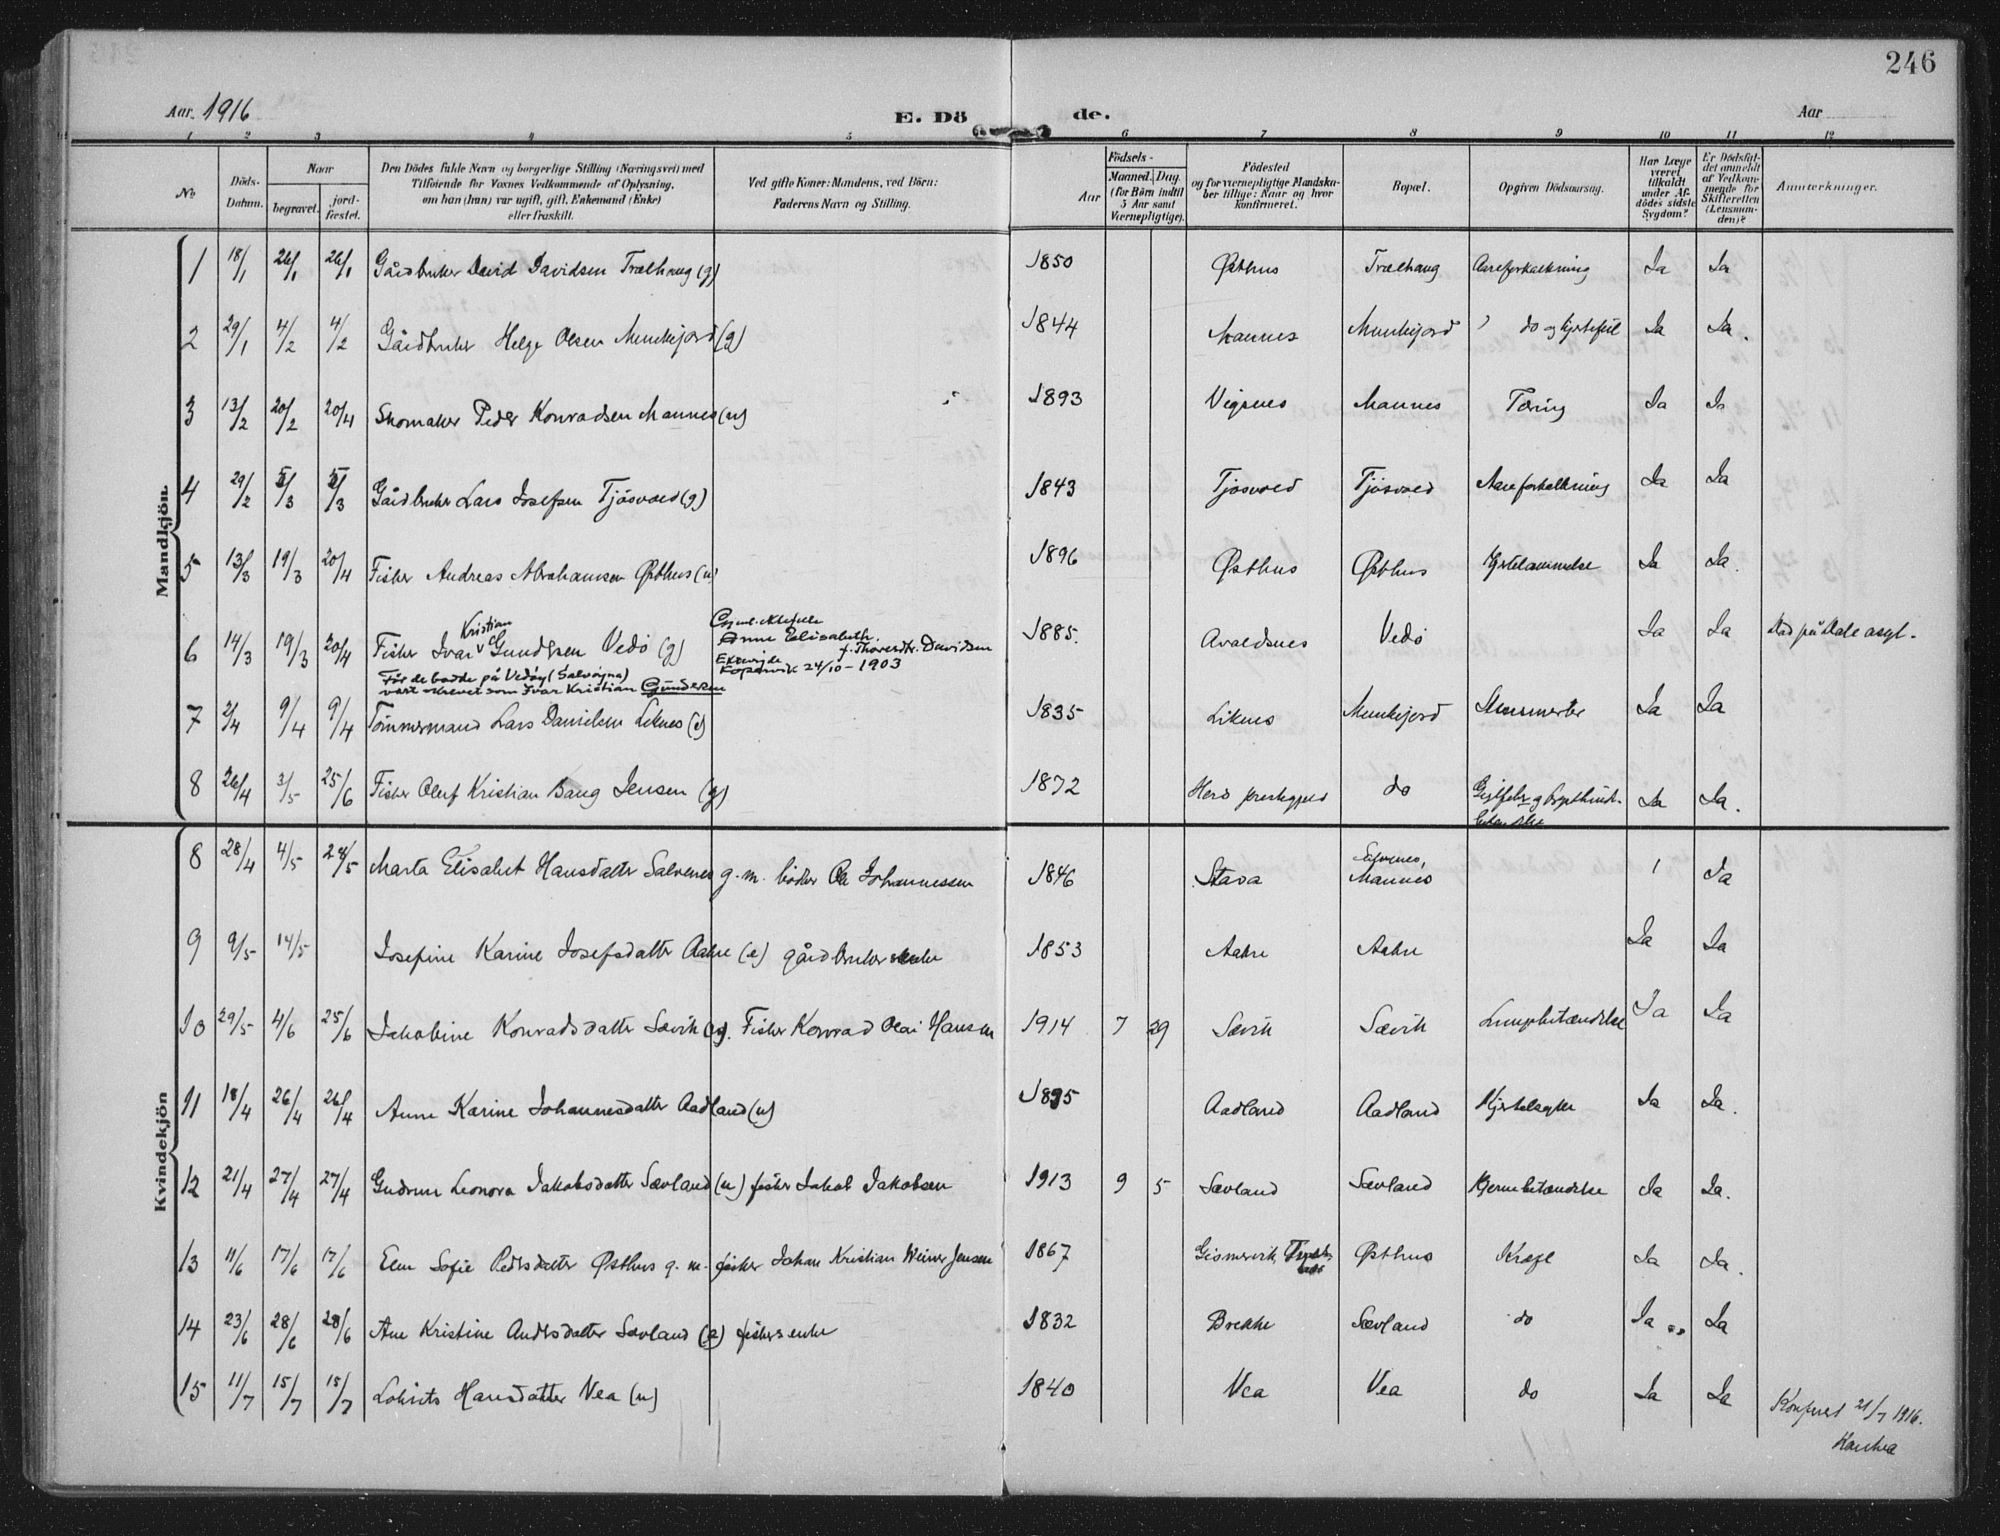 246
Aar 1916
E. Dö
de.
Aar
1 2 3 4 5 6 7 8 9 10 11 12
No
Döds-Datum.
Naar
begravet.
jord-fæstet.
Den Dödes fulde Navn og borgerlige Stilling (Næringsvei) med
Tilföiende for Voxnes Vedkommende af Oplysning,
om han (hun) var ugift, gift, Enkemand (Enke)
eller fraskilt.
Ved gifte Koner: Mandens, ved Börn:
Faderens Navn og Stilling.
Födsels-
Aar
Maaned. Dag.
(for Börn indtil
5 Aar samt
Værnepligtige).
Födested
og for værnepligtige Mandska-
ber tillige: Naar og hvor
konfirmeret.
Bopæl.
Opgiven Dödsaarsag.
Har Læge
været
tilkaldt
under Af-
dödes sidste
Sygdom?
Er Dödsfal-
det anmeldt
af Vedkom-
mende for
Skifteretten
(Lensman-
den)?
Anmerkninger.
Mandkjön.
1 18/1 26/1 26/1 Gårdbruker David Davidsen Trælhaug (g) 1850 Østhus Trælhaug Aareforkalkning Ja Ja
2 29/1 4/2 4/2 Gårdbruker Helge Olsen Munkejord (g) 1844 Mannes Munkejord do og hjertefeil Ja Ja.
3 13/2 20/2 20/4 Skomaker Peder Konradsen Mannes (u) 1893 Vigsnes Mannes Tæring Ja Ja
4 29/2 5/3 5/3 Gårdbruker Lars Josefsen Tjösvold (g) 1843 Tjösvold Tjösvold Aareforkalkning Ja Ja
5 13/3 19/3 20/4 Fisker Andreas Abrahamsen Østhus (u) 1896 Østhus Østhus Hjertelammelse Ja Ja.
Kristian
6 14/3 19/3 20/4 Fisker Ivar Gundersen Vedö (g) 1885. Avaldsnes Vedö Ja Ja Död på Dale asyl.
Anne Elisabeth
f. Thorvardtr. Davidsen
Kopervik 24/10-1903
För de bodde på Vedöy (Salvöyna)
vart skrevet som Ivar Kristian Gundersen
7 2/4 9/4 9/4 Tömmermand Lars Danielsen Liknes (e) 1835 Liknes Munkejord Ja Ja
8 26/4 3/5 25/6 Fisker Oluf Kristian Bang Jensen (g) 1872 Herö prestegjeld do Ja Ja.
Kvindekjön
8 28/4 4/5 24/5 Marta Elisabet Hansdatter Salvenes g. m. bödker Ole Johannessen 1846 Stava Salvenes, Mannes Ja
9 9/5 14/5 Josefine Karine Josefsdatter Aakre (e) gårdbrukerenke 1853 Aakre Aakre Ja Ja
10 29/5 4/6 25/6 Jakobine Konradsdatter Sævik (u). Fisker Konrad Olai Hansen 1914 7 29 Sævik Sævik Lungebetændelse Ja Ja
11 18/4 26/4 26/4 Anne Karine Johannesdatter Aadland (u) 1895 Aadland Aadland Ja Ja.
12 21/4 27/4 27/4 Gudrun Leonora Jakobsdatter Sævland (u) fisker Jakob Jakobsen 1913 9 5 Sævland Sævland Hjernebetændelse Ja Ja.
13 11/6 17/6 17/6 Elen Sofie Pedersdatter Østhus g. m. fisker Johan Kristian Weiner Jensen 1867 Gismervik, Østhus Kræft Ja Ja.
14 23/6 28/6 28/6 Ane Kristine Andersdatter Sævland (e) fiskers enke 1832 Brekke Sævland do Ja Ja
15 11/7 15/7 15/7 Hansdatter Vea (u) 1840 Vea Vea do Ja Ja
Konferert 21/7 1916.